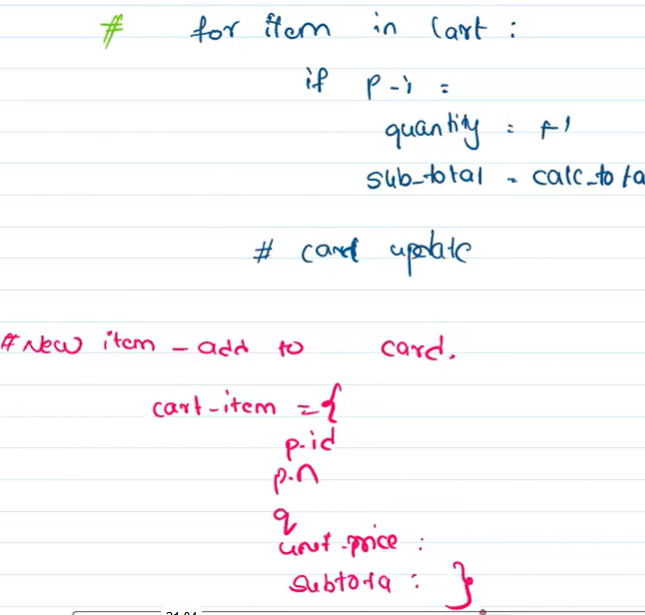 # for item in Cart :
if p-i =
quantity = +1
sub_total = calc_tota
# card update
# New item - add to card.
cart-item = {
p.id
p.n
q
unit-price :
subtota : }